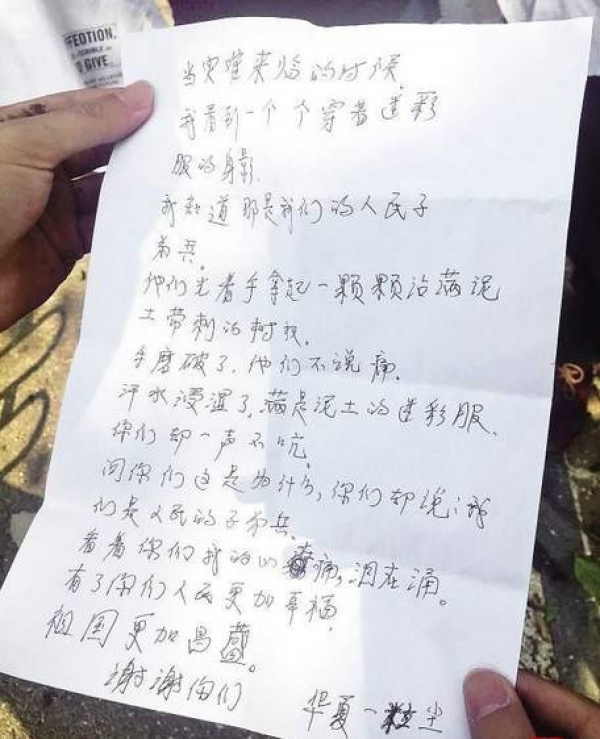 FEOTION.
GIVE
当灾难来临的时候,
我看到一个个穿着迷彩
服的身影.
我知道那是我们的人民子
弟兵.
他们光着手拿起一颗颗沾满泥
土带刺的树杈.
手磨破了,他们不说痛.
汗水浸湿了,满是泥土的迷彩服.
你们却一声不吭.
问你们这是为什么,你们却说:我
们是人民的子弟兵.
看着你们我的心痛,泪在涌。
有了你们人民更加幸福,
祖国更加昌盛。
谢谢你们
华夏一粒尘